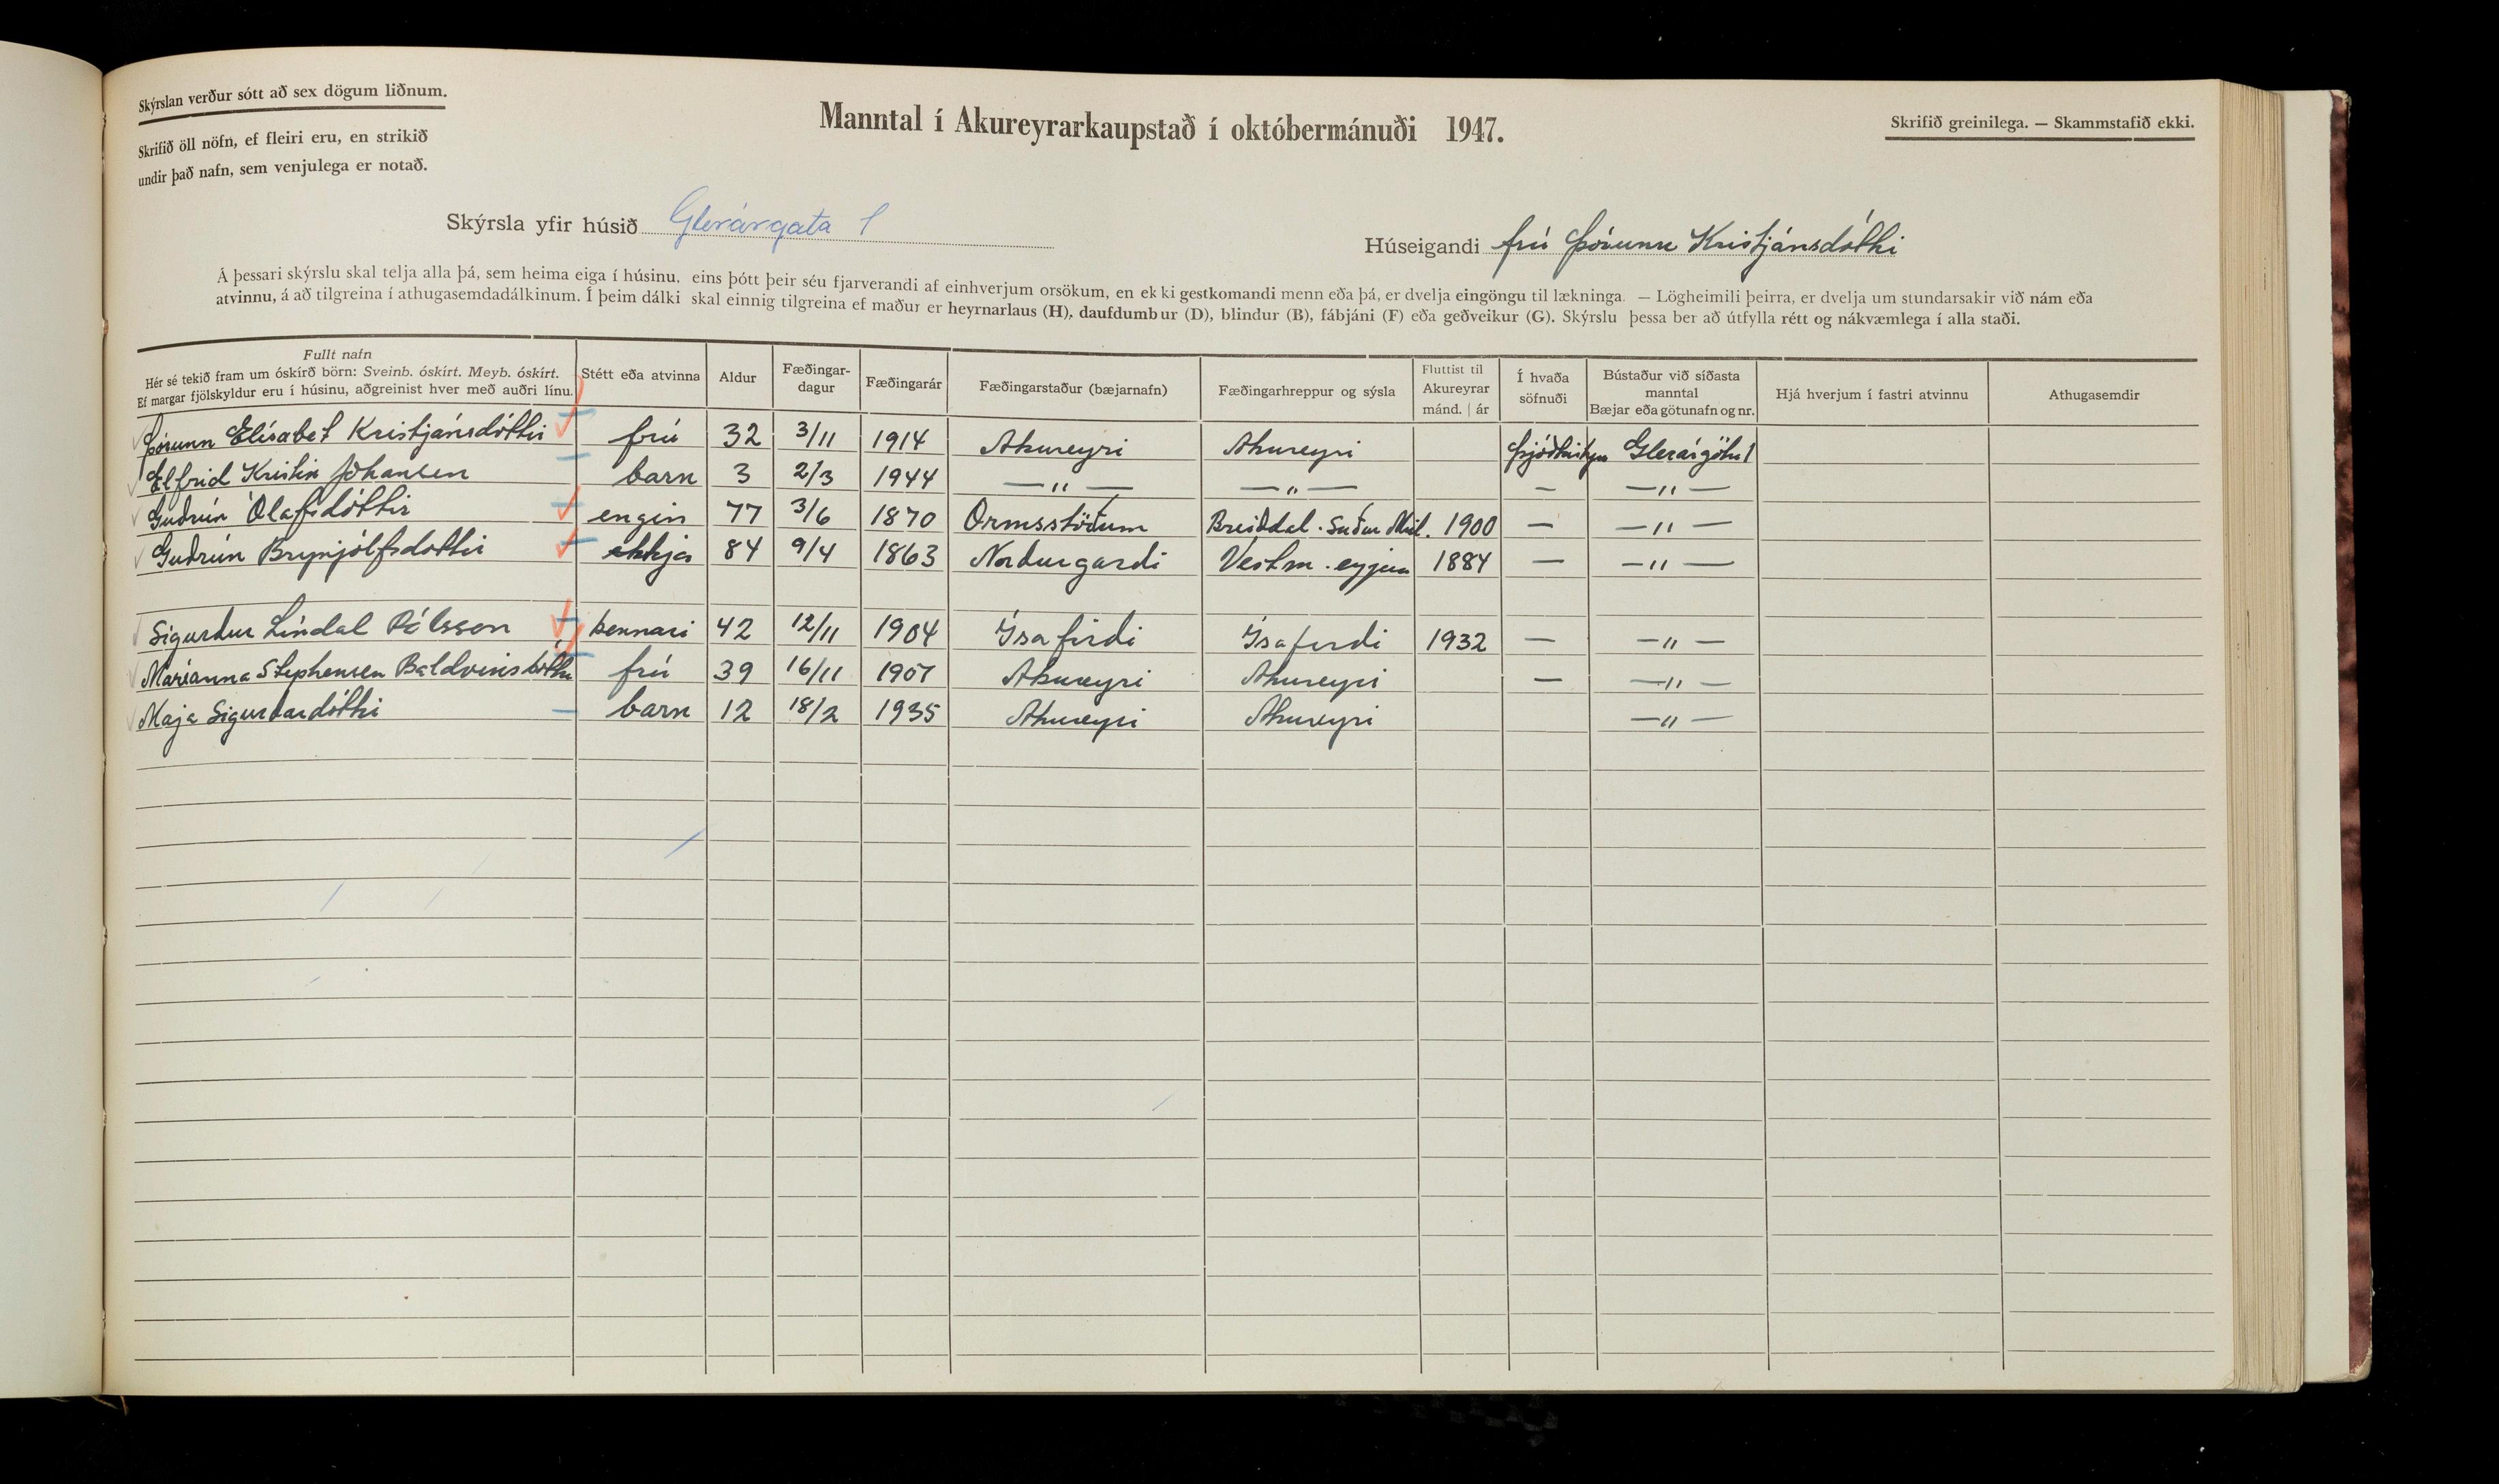 Skýrslan verður sótt að sex dögum liðnum.
Skrifið öll nöfn, ef fleiri eru, en strikið
undir það nafn, sem venjulega er notað.
Manntal í Akureyrarkaupstað í októbermánuði 1947.
Skrifið greinilega. — Skammstafið ekki.
Skýrsla yfir húsið Glerárgata 1
Húseigandi frú Þórunn Kristjánsdóttir
Á þessari skýrslu skal telja alla þá, sem heima eiga í húsinu, eins þótt þeir séu fjarverandi af einhverjum orsökum, en ekki gestkomandi menn eða þá, er dvelja eingöngu til lækninga. — Lögheimili þeirra, er dvelja um stundarsakir við nám eða
atvinnu, á að tilgreina í athugasemdadálkinum. Í þeim dálki skal einnig tilgreina ef maður er heyrnarlaus (H), daufdumbur (D), blindur (B), fábjáni (F) eða geðveikur (G). Skýrslu þessa ber að útfylla rétt og nákvæmlega í alla staði.
Fullt nafn
Hér sé tekið fram um óskírð börn: Sveinb. óskírt. Meyb. óskírt.
Ef margar fjölskyldur eru í húsinu, aðgreinist hver með auðri línu.
Stétt eða atvinna
Aldur
Fæðingar-
dagur
Fæðingarár
Fæðingarstaður (bæjarnafn)
Fæðingarhreppur og sýsla
Fluttist til
Akureyrar
mánd. | ár
Í hvaða
söfnuði
Bústaður við síðasta
manntal
Bæjar eða götunafn og nr.
Hjá hverjum í fastri atvinnu
Athugasemdir
Þórunn Elísabet Kristjánsdóttir frú 32 3/11 1914 Akureyri Akureyri Þjóðkirkju Glerárgötu 1
Elfrid Kristín Jóhansen barn 3 2/3 1944 — " — — " — — — " —
Guðrún Ólafsdóttir engin 77 3/6 1870 Ormsstöðum Breiðdal. Suður Múl. 1900 — — " —
Guðrún Brynjólfsdóttir ekkja 84 9/4 1863 Norðurgarði Vestm.eyjum 1884 — — " —
Sigurður Líndal Pálsson kennari 42 12/11 1904 Ísafirði Ísafirði 1932 — — " —
Maríanna Stephensen Baldvinsdóttir frú 39 16/11 1907 Akureyri Akureyri — — " —
Maja Sigurðardóttir barn 12 18/2 1935 Akureyri Akureyri — " —